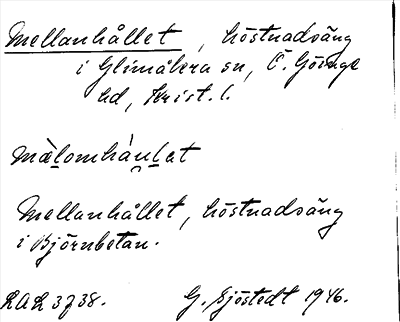 Mellanhållet, höstnadsäng
i Glimåkra sn, Ö. Göinge
hd, Krist. l.
mèlomhàu̯lət
Mellanhållet, höstnadsäng
i Björnbetan.
LAL 3738.   G. Sjöstedt 1946.